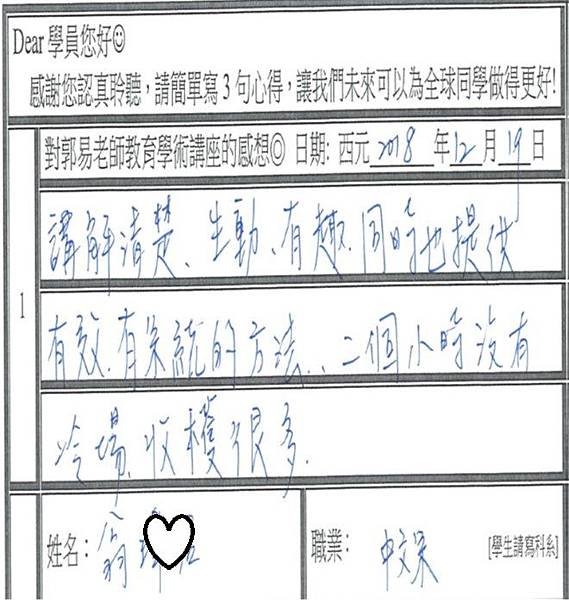 Dear 學員您好☺
感謝您認真聆聽，請簡單寫3句心得，讓我們未來可以為全球同學做得更好!
對郭易老師教育學術講座的感想◎ 日期: 西元 2018 年 12 月 19 日
1
講解清楚、生動、有趣.同時也提供
有效.有系統的方法..二個小時沒有
冷場.收穫很多.
姓名：翁
職業： 中文系 [學生請寫科系]